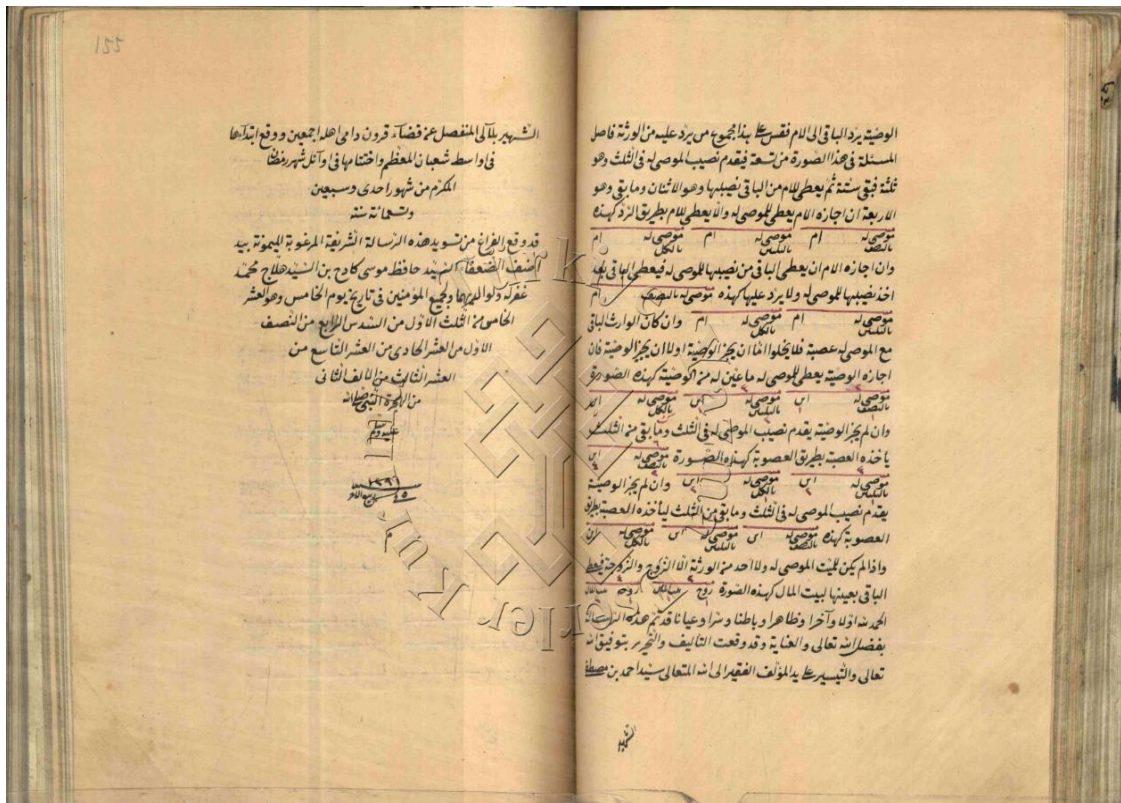 الوصية يرد الباقى الى الام فقس على هذا مجموع من يرد عليه من الورثة فاصل
المسئلة فى هذا الصورة من تسعة فيقدم نصيب الموصى له فى الثلث وهو
ثلثة فبقى ستة ثم يعطى للام من الباقى نصيبها وهو الاثنان وما بقى وهو
الاربعة ان اجازه الام يعطى للموصى له والا يعطى للام بطريق الرد كهذه
موصى له بالنصف ام موصى له بالثلثين ام موصى له بالكل ام
وان اجازه الام ان يعطى الباقى من نصيبها للموصى له فيعطى الباقى بعد
اخذ نصيبها للموصى له ولا يرد عليها كهذه موصى له بالنصف ام
موصى له بالثلثين ام موصى له بالكل ام وان كان الوارث الباقى
مع الموصى له عصبة فلا يخلوا اما ان يجز الوصية او لا ان يجز الوصية فان
اجازه الوصية يعطى للموصى له ما عين له من الوصية كهذه الصورة
موصى له بالنصف ابن موصى له بالثلثين ابن موصى له بالكل ابن
وان لم يجز الوصية يقدم نصيب الموصى له فى الثلث وما بقى من الثلث
ياخذه العصبة بطريق العصوبة كهذه الصورة موصى له بالنصف ابن
موصى له بالثلثين ابن موصى له بالكل ابن وان لم يجز الوصية
يقدم نصيب الموصى له فى الثلث وما بقى من الثلث ليأخذه العصبة بطريق
العصوبة كهذه موصى له بالنصف ابن موصى له بالثلثين ابن موصى له بالكل ابن
واذا لم يكن للميت الموصى له ولا احد من الورثة الا الزوج والزوجة فيعطى
الباقى بعينها لبيت المال كهذه الصورة زوج بيت المال زوجه بيت المال
الحمد لله اولا وآخرا وظاهرا وباطنا وسرا وعيانا قد تم هذه الرسالة
بفضل الله تعالى والعناية وقد وقعت التاليف والتحرير بتوفيق الله
تعالى والتيسير على يد المؤلف الفقير الى الله المتعالى سيد احمد بن مصطفى
الشهير
155
الشهير بلآلى المنفصل عن قضاء قرون دامى اهله اجمعين ووقع ابتداءها
فى اواسط شعبان المعظم واختتامها فى اوآئل شهر رمضان
المكرم من شهور احدى وسبعين
وتسعمائة سنة
قد وقع الفراغ من تسويد هذه الرسالة الشريفة المرغوبة الميمونة بيد
اضعف الضعفاء السيد حافظ موسى كادح بن السيد حلاج محمد
غفر له ولوالديهما ولجميع المؤمنين فى تاريخ يوم الخامس وهو العشر
الخامس من الثلث الاول من السدس الرابع من النصف
الاول من العشر الحادى من العشر التاسع من
العشر الثالث من الالف الثانى
من الهجرة النبى صلى الله
عليه وسلم
١٢٩١